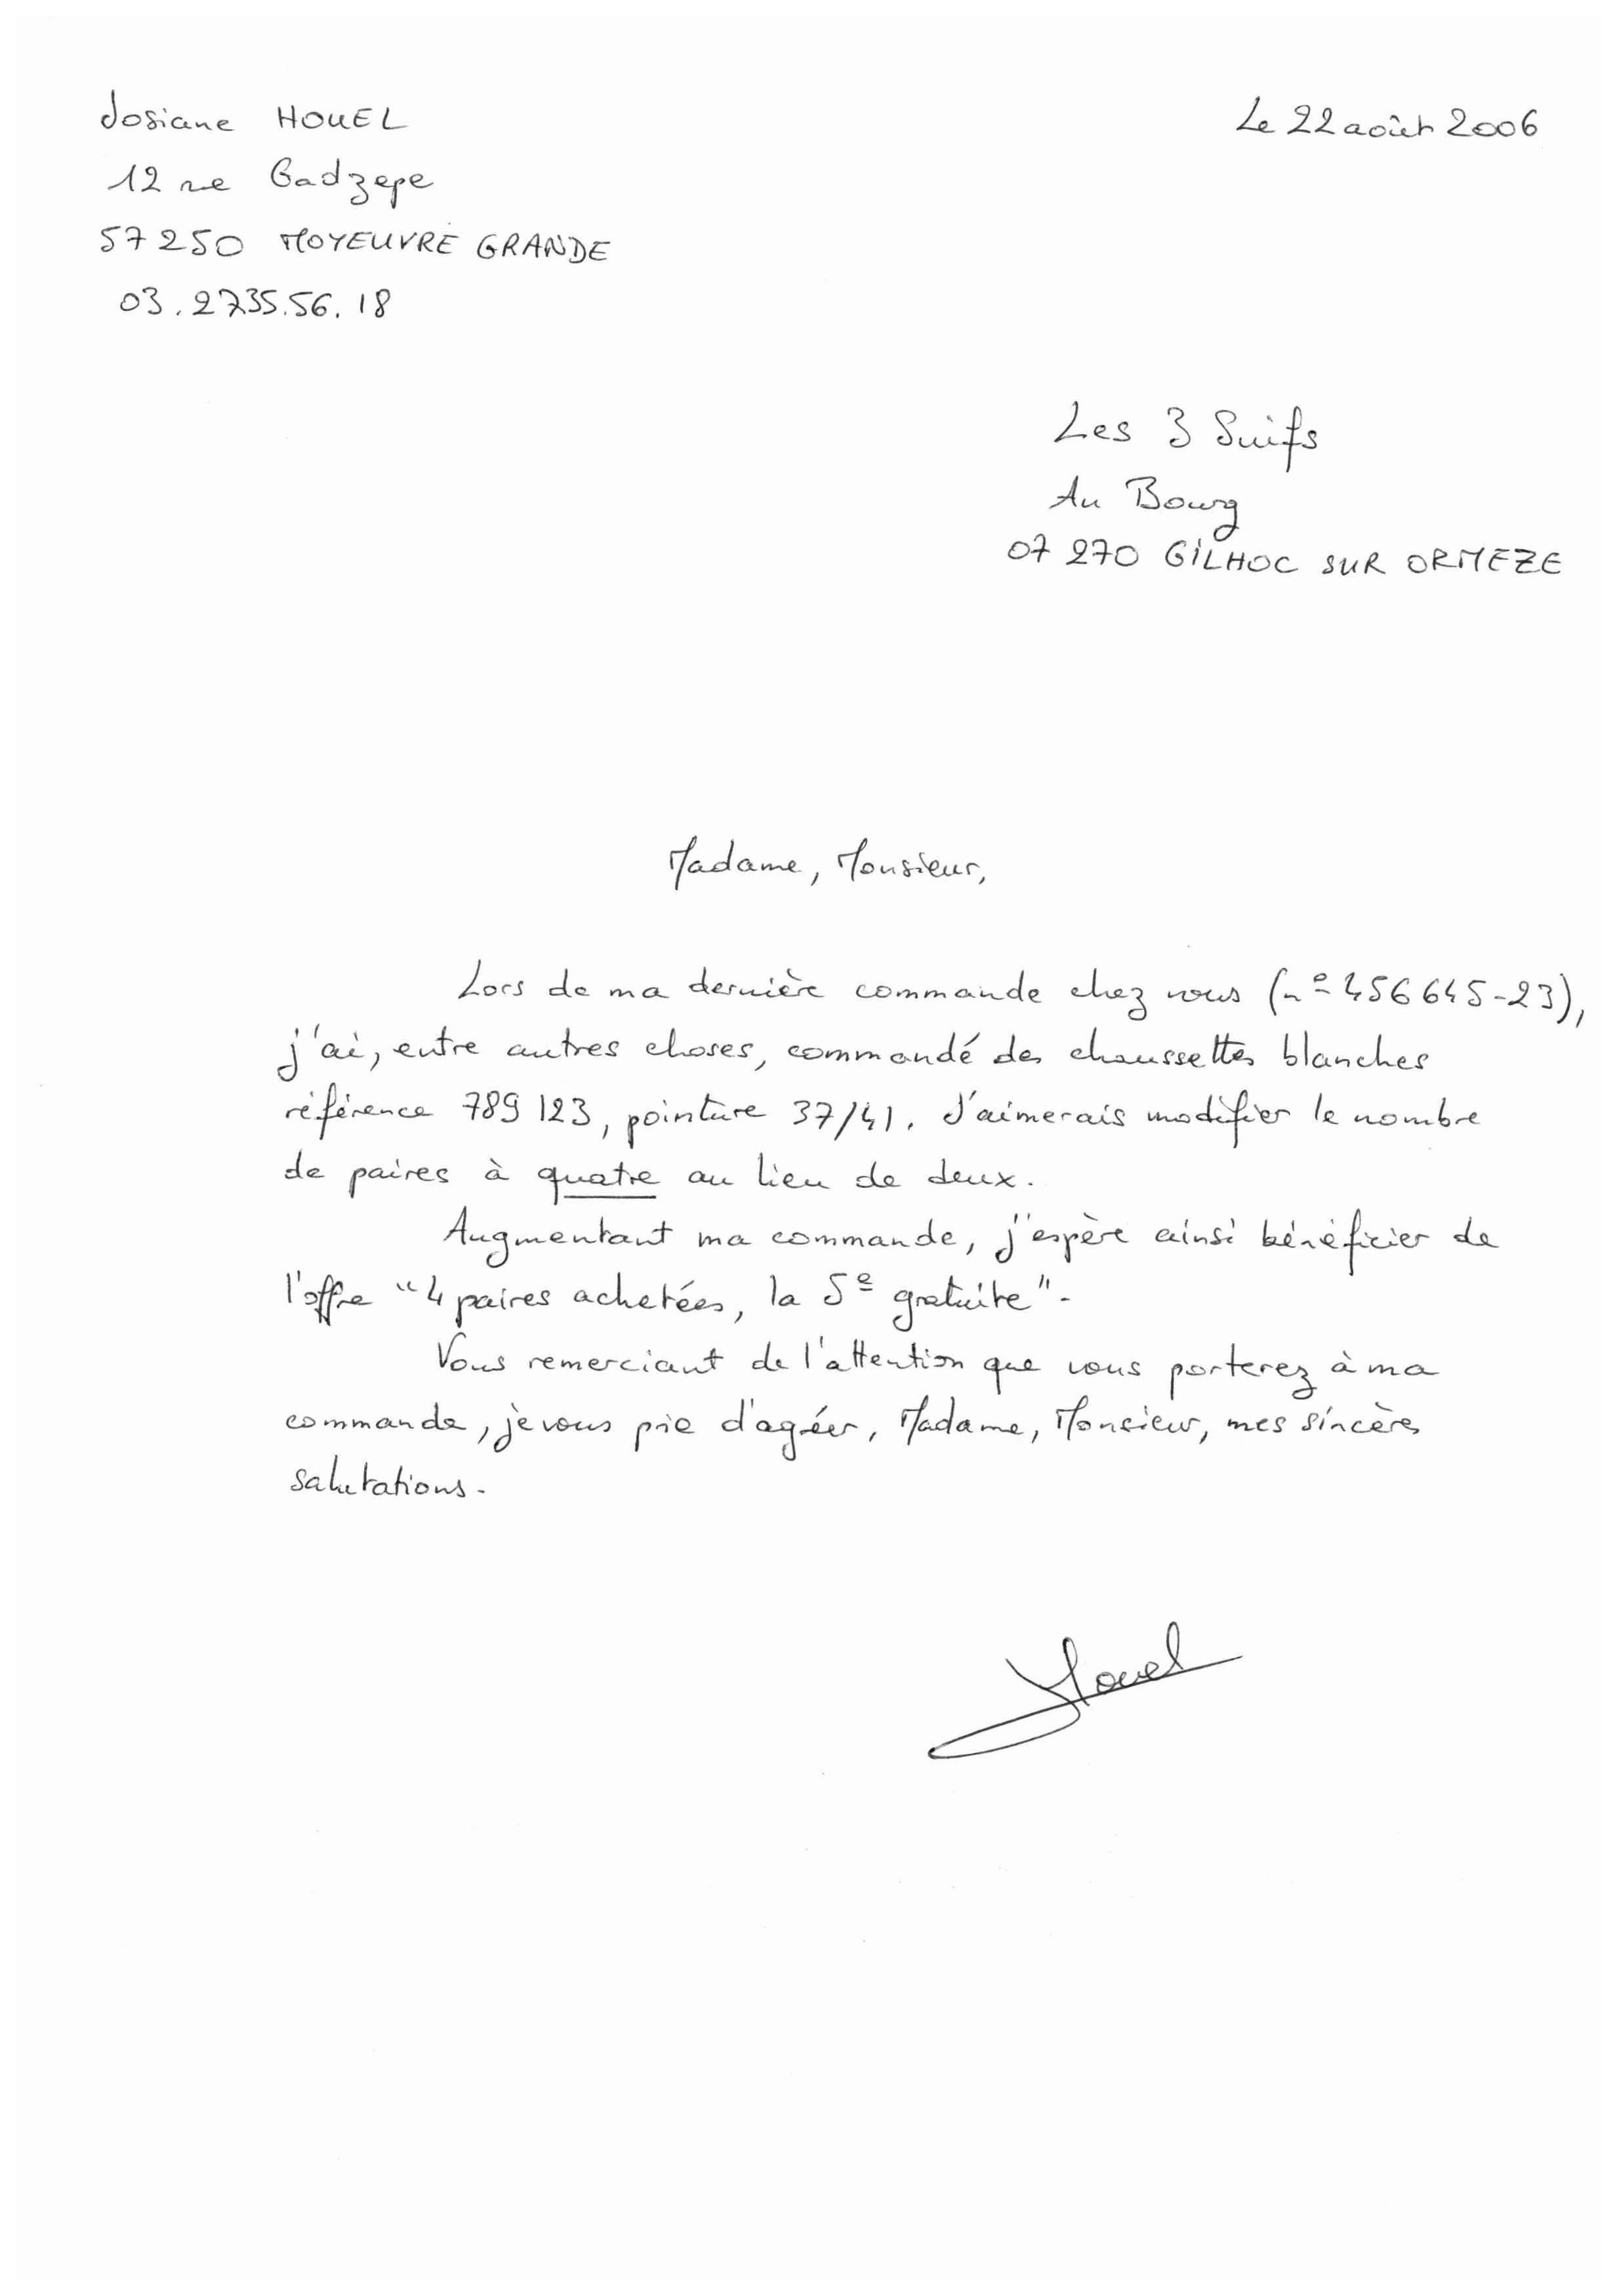 Josiane HOUEL
Le 22 août 2006
12 rue Gadzepe
57250 MOYEUVRE GRANDE
03.2735.56.18
Les 3 Suifs
Au Bourg
07 270 GILHOC SUR ORMEZE
Madame, Monsieur,
Lors de ma dernière commande chez vous (n° 456645-23),
j'ai, entre autres choses, commandé des chaussettes blanches
référence 789 123, pointure 37/41. J'aimerais modifier le nombre
de paires à quatre au lieu de deux.
Augmentant ma commande, j'espère ainsi bénéficier de
l'offre "4 paires achetées, la 5e gratuite".
Vous remerciant de l'attention que vous porterez à ma
commande, je vous prie d'agréer, Madame, Monsieur, mes sincères
salutations.
Houel